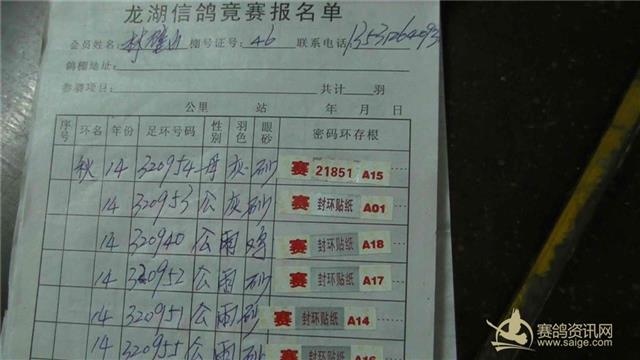 龙湖信鸽竟赛报名单
会员姓名: 山 棚号证号: 46 联系电话: 13531264093
鸽棚地址:
参赛项目: 共计 羽
公里 站 年 月 日
序号 环名 年份 足环号码 性别 羽色 眼砂 密码环存根
秋 14 320954 母 灰 砂 赛 21851 A15
14 320953 公 灰 砂 赛 封环贴纸 A01
14 320940 公 雨 赛 封环贴纸 A18
14 320952 公 雨 砂 赛 封环贴纸 A17
14 320951 公 雨 砂 赛 封环贴纸 A14
14 320955 公 雨 砂 赛 封环贴纸 A16
赛鸽资讯网
www.saige.com